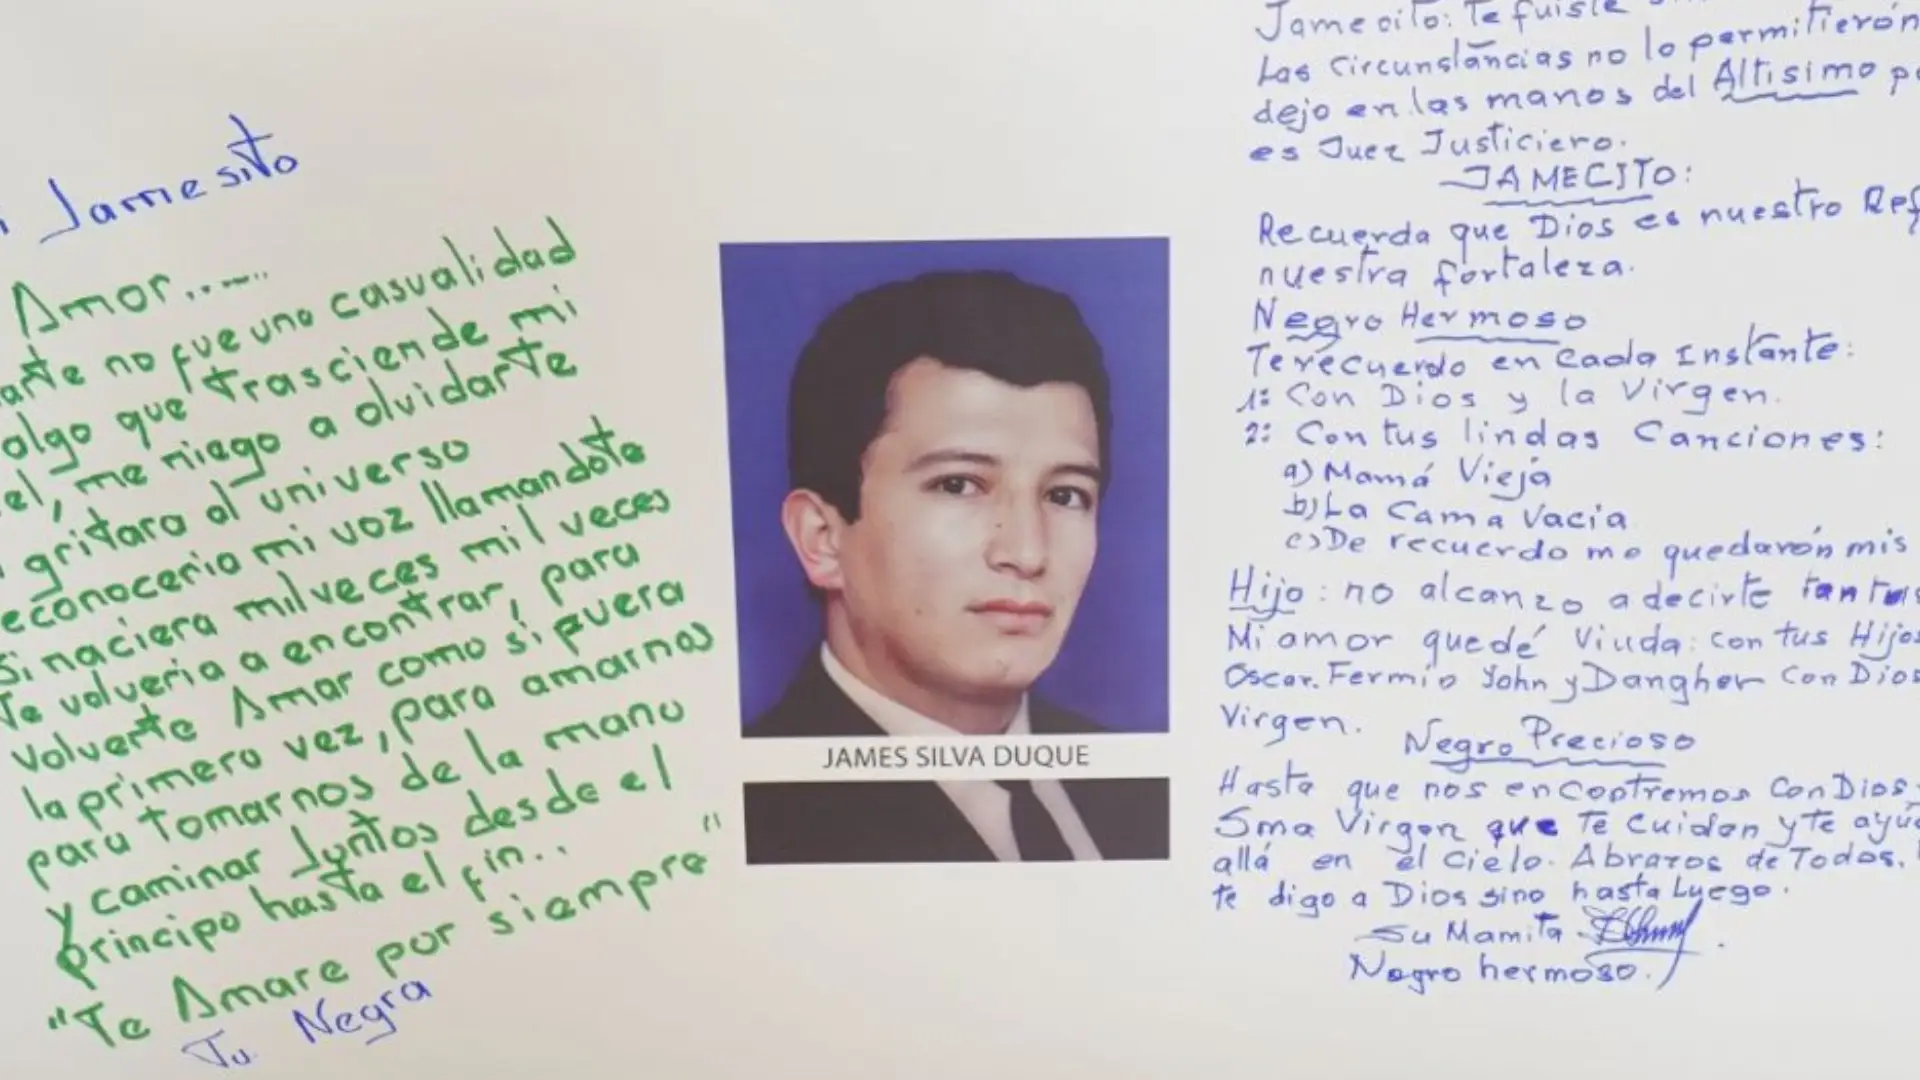 Jamesito
Amor......
no fue una casualidad
algo que trasciende mi
el, me niego a olvidarte
gritara al universo
mi voz llamandote
Si naciera mil veces mil veces
Te volveria a encontrar, para
volverte Amar como si fuera
la primera vez, para amarnos
para tomarnos de la mano
y caminar Juntos desde el
principo hasta el fin..
"Te Amare por siempre"
Tu Negra
JAMES SILVA DUQUE
Jamecito: Te fuiste
Las Circunstancias no lo permitierón
dejo en las manos del Altisimo
es Juez Justiciero.
JAMECITO:
Recuerda que Dios es nuestro
nuestra fortaleza.
Negro Hermoso
Te recuerdo en Cada Instante:
1: Con Dios y la Virgen.
2: Con tus lindas Canciones:
a) Mamá Vieja
b) La Cama Vacia
c) De recuerdo me quedarón mis
Hijo: no alcanzo a decirte tantas
Mi amor quedé Viuda: con tus Hijos
Oscar. Fermin John y Dangher Con Dios
Virgen.
Negro Precioso
Hasta que nos encontremos Con Dios
Sma Virgen que Te Cuidan y te
allá en el Cielo. Abrazos de Todos.
te digo a Dios sino hasta Luego.
Su Mamita
Negro hermoso.